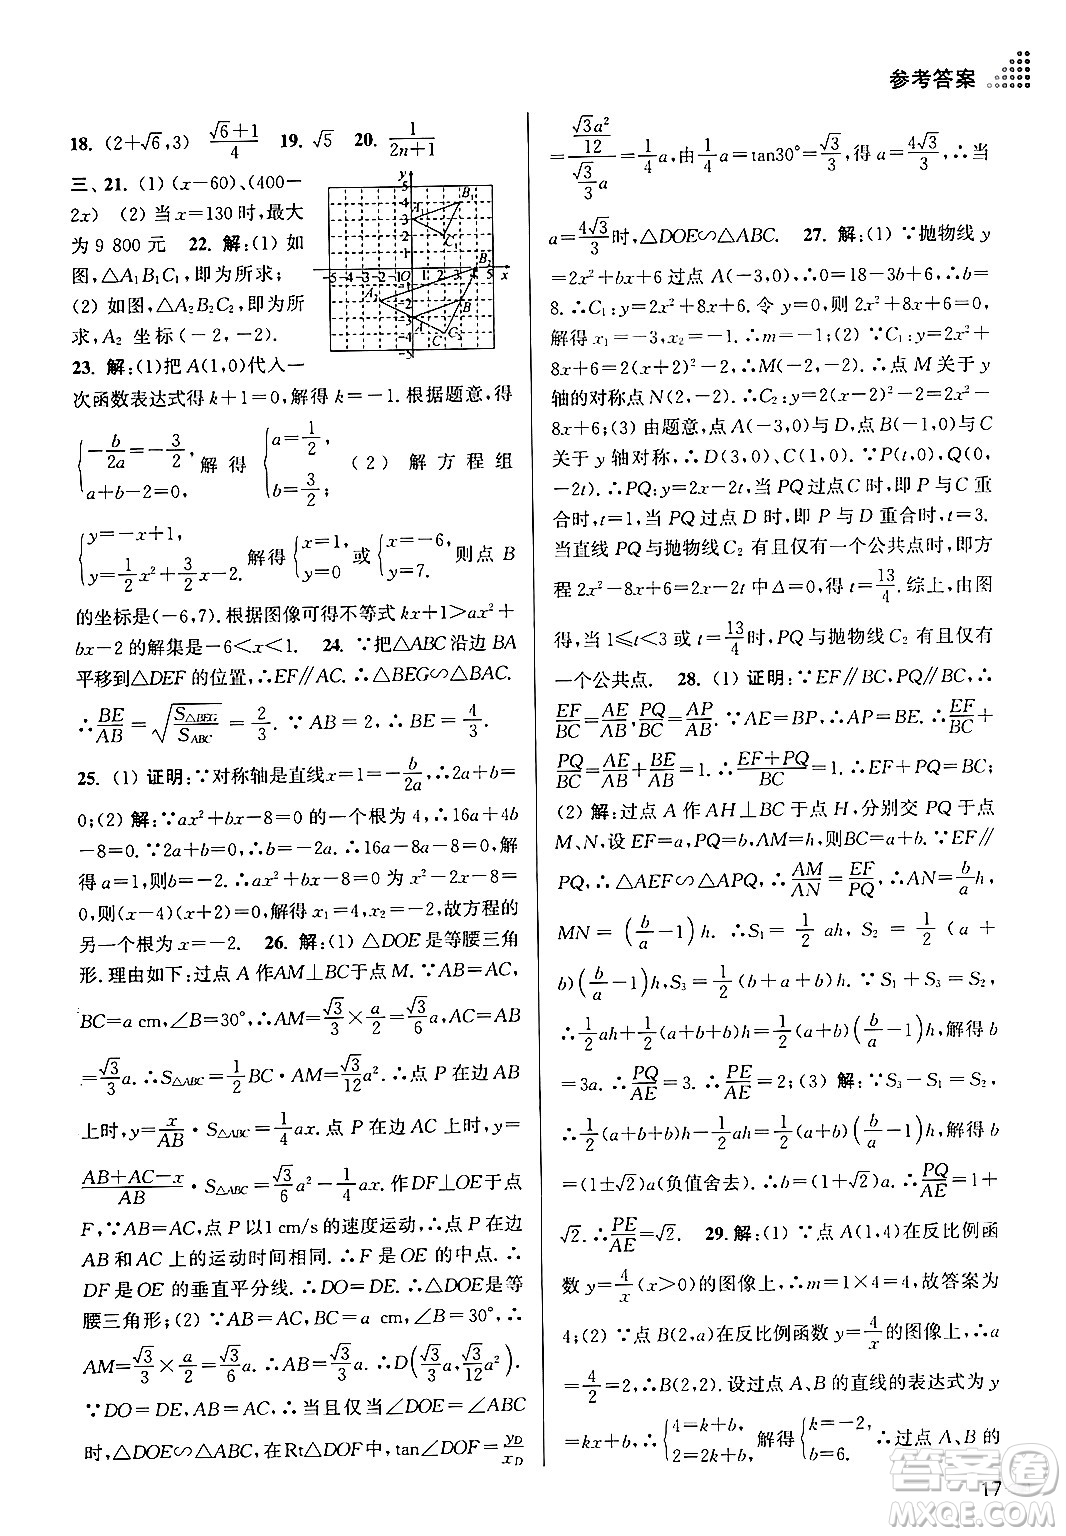 参考答案
18. (2+√6,3) (√6+1)/4 19. √5 20. 1/(2n+1)
三、21. (1) (x-60)、(400-
2x) (2) 当 x=130 时,最大
为 9 800 元 22. 解:(1) 如
图,△A₁B₁C₁,即为所求;
(2) 如图,△A₂B₂C₂,即为所
求,A₂ 坐标(-2,-2).
23. 解:(1)把 A(1,0)代入一
次函数表达式得 k+1=0,解得 k=-1. 根据题意,得
{-b/2a=-3/2, a+b-2=0, 解得 {a=1/2, b=3/2; (2) 解方程组
{y=-x+1, y=1/2x²+3/2x-2. 解得{x=1, y=0 或{x=-6, y=7. 则点 B
的坐标是(-6,7). 根据图像可得不等式 kx+1>ax²+
bx-2 的解集是-6<x<1. 24. ∵把△ABC 沿边 BA
平移到△DEF 的位置,∴EF∥AC. ∴△BEG∽△BAC.
∴BE/AB=√(S△BEG/SABC)=2/3. ∵AB=2,∴BE=4/3.
25. (1) 证明:∵对称轴是直线x=1=-b/2a,∴2a+b=
0;(2) 解:∵ax²+bx-8=0 的一个根为 4,∴16a+4b
-8=0. ∵2a+b=0,∴b=-2a. ∴16a-8a-8=0,解
得 a=1,则b=-2. ∴ax²+bx-8=0 为 x²-2x-8=
0,则(x-4)(x+2)=0,解得 x₁=4,x₂=-2,故方程的
另一个根为 x=-2. 26. 解:(1) △DOE 是等腰三角
形. 理由如下:过点 A 作AM⊥BC于点 M. ∵AB=AC,
BC=a cm,∠B=30°,∴AM=√3/3×a/2=√3/6a,AB
=√3/3a. ∴S△ABC=1/2BC·AM=√3/12a²,∴点 P 在边 AB
上时,y=x/AB·S△ABC=1/4ax. 点 P 在边AC上时,y=
(AB+AC-x)/AB·S△ABC=√3/6a²-1/4ax. 作DF⊥OE于点
F,∵AB=AC,点 P 以1 cm/s 的速度运动,∴点 P 在边
AB 和 AC 上的运动时间相同. ∴F 是 OE 的中点. ∴
DF 是 OE 的垂直平分线. ∴DO=DE. ∴△DOE是等
腰三角形;(2) ∵AB=AC,BC=a cm,∠B=30°,∴
AM=√3/3×a/2=√3/6a. ∴AB=√3/3a. ∴D(√3/3a,√3/12a²).
∵DO=DE,AB=AC,∴当且仅当∠DOE=∠ABC
时,△DOE∽△ABC,在 Rt△DOF 中,tan∠DOF=yD/xD
=(√3a²/12)/(√3/3a)=1/4a,由1/4a=tan30°=√3/3,得 a=4√3/3,∴当
a=4√3/3时,△DOE∽△ABC. 27. 解:(1) ∵抛物线 y
=2x²+bx+6 过点 A(-3,0),∴0=18-3b+6. ∴b=
8. ∴C₁:y=2x²+8x+6. 令 y=0,则 2x²+8x+6=0.
解得 x₁=-3,x₂=-1. ∴m=-1;(2) ∵C₁:y=2x²+
8x+6=2(x+2)²-2. ∴M(-2,-2). ∴点 M 关于 y
轴的对称点 N(2,-2). ∴C₂:y=2(x-2)²-2=2x²-
8x+6;(3) 由题意,点 A(-3,0)与点 D,点 B(-1,0)与 C
关于 y 轴对称,∴D(3,0)、C(1,0). ∵P(t,0),Q(0,
-2t). ∴PQ:y=2x-2t,当 PQ过点C 时,即 P 与 C 重
合时,t=1,当 PQ 过点 D 时,即 P 与 D 重合时,t=3.
当直线 PQ 与抛物线 C₂ 有且只有一个公共点时,即方
程 2x²-8x+6=2x-2t 中 Δ=0,得 t=13/4. 综上,由图
得,当 1≤t<3 或 t=13/4时,PQ 与抛物线 C₂ 有且仅有
一个公共点. 28. (1) 证明:∵EF∥BC,PQ∥BC,∴
EF/BC=AE/AB,PQ/BC=AP/AB. ∵AE=BP,∴AP=BE. ∴EF/BC+
PQ/BC=AE/AB+BE/AB=1. ∴(EF+PQ)/BC=1. ∴EF+PQ=BC;
(2) 解:过点 A 作 AH⊥BC 于点 H,分别交 PQ 于点
M、N,设 EF=a,PQ=b,AM=h,则BC=a+b. ∵EF∥
PQ,∴△AEF∽△APQ. ∴AM/AN=EF/PQ,∴AN=b/a h,
MN=(b/a-1)h. ∴S₁=1/2 ah, S₂=1/2(a+
b)(b/a-1)h,S₃=1/2(a+b+b)h. ∵S₁+S₃=S₂,
∴1/2ah+1/2(a+b+b)h=1/2(a+b)(b/a-1)h,解得 b
=3a. ∴PQ/AE=3. ∴PE/AE=2;(3) 解:∵S₃-S₁=S₂,
∴1/2(a+b+b)h-1/2ah=1/2(a+b)(b/a-1)h,解得 b
=(1±√2)a(负值舍去). ∴b=(1+√2)a,∴PQ/AE=1+
√2. ∴PE/AE=√2. 29. 解:(1) ∵点 A(1,4)在反比例函
数 y=4/x(x>0)的图像上,∴m=1×4=4,故答案为
4;(2) ∵点 B(2,a)在反比例函数 y=4/x的图像上,∴a
=4/2=2,∴B(2,2). 设过点 A、B 的直线的表达式为 y
=kx+b,∴{4=k+b, 2=2k+b, 解得{k=-2, b=6. ∴过点 A、B 的
17
答案圈
MXQE.COM